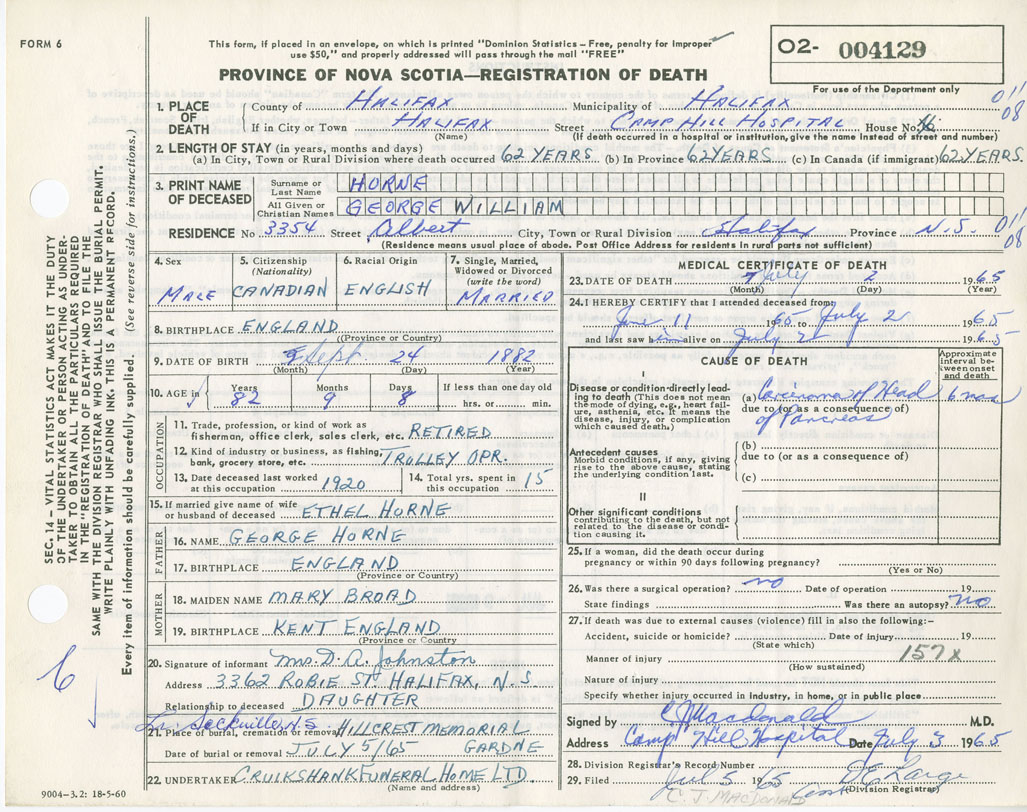 FORM 6
This form, if placed in an envelope, on which is printed "Dominion Statistics – Free, penalty for improper
use $50," and properly addressed will pass through the mail "FREE"
O2- 004129
PROVINCE OF NOVA SCOTIA—REGISTRATION OF DEATH
For use of the Department only
1. PLACE OF DEATH
County of HALIFAX Municipality of HALIFAX
If in City or Town HALIFAX Street CAMP HILL HOSPITAL House No.
(Name) (If death occurred in a hospital or institution, give the name instead of street and number)
2. LENGTH OF STAY (in years, months and days)
(a) In City, Town or Rural Division where death occurred 62 YEARS (b) In Province 62 YEARS (c) In Canada (if immigrant) 62 YEARS.
3. PRINT NAME OF DECEASED
Surname or Last Name HORNE
All Given or Christian Names GEORGE WILLIAM
RESIDENCE No 3354 Street Albert City, Town or Rural Division Halifax Province N.S.
(Residence means usual place of abode. Post Office Address for residents in rural parts not sufficient)
011
08
011
08
4. Sex
MALE
5. Citizenship
(Nationality)
CANADIAN
6. Racial Origin
ENGLISH
7. Single, Married,
Widowed or Divorced
(write the word)
MARRIED
8. BIRTHPLACE ENGLAND
(Province or Country)
9. DATE OF BIRTH Sept 24 1882
(Month) (Day) (Year)
10. AGE in Years 82 Months 9 Days 8
If less than one day old
hrs. or min.
OCCUPATION
11. Trade, profession, or kind of work as
fisherman, office clerk, sales clerk, etc. RETIRED
12. Kind of industry or business, as fishing,
bank, grocery store, etc. TROLLEY OPR.
13. Date deceased last worked
at this occupation 1920
14. Total yrs. spent in
this occupation 15
15. If married give name of wife
or husband of deceased ETHEL HORNE
FATHER
16. NAME GEORGE HORNE
17. BIRTHPLACE ENGLAND
(Province or Country)
MOTHER
18. MAIDEN NAME MARY BROAD
19. BIRTHPLACE KENT ENGLAND
(Province or Country)
20. Signature of informant Mrs. D. A. Johnston
Address 3362 ROBIE ST HALIFAX, N.S
Relationship to deceased DAUGHTER
Sackville, N.S
21. Place of burial, cremation or removal HILLCREST MEMORIAL
Date of burial or removal JULY 5/65 GARDNE
22. UNDERTAKER CRUIKSHANK FUNERAL HOME LTD.
(Name and address)
9004-3.2: 18-5-60
MEDICAL CERTIFICATE OF DEATH
23. DATE OF DEATH July 2 1965
(Month) (Day) (Year)
24. I HEREBY CERTIFY that I attended deceased from
June 11 1965 to July 2 1965
and last saw him alive on July 2 1965
CAUSE OF DEATH
Approximate
interval be-
tween onset
and death
I
Disease or condition directly lead-
ing to death (This does not mean
the mode of dying, e.g., heart fail-
ure, asthenia, etc. It means the
disease, injury, or complication
which caused death.)
(a) Carcinoma of Head
due to (or as a consequence of)
of Pancreas
6 mos
Antecedent causes
Morbid conditions, if any, giving
rise to the above cause, stating
the underlying condition last.
(b)
due to (or as a consequence of)
(c)
II
Other significant conditions
contributing to the death, but not
related to the disease or condi-
tion causing it.
25. If a woman, did the death occur during
pregnancy or within 90 days following pregnancy?
(Yes or No)
26. Was there a surgical operation? no Date of operation 19
State findings Was there an autopsy? no
27. If death was due to external causes (violence) fill in also the following:–
Accident, suicide or homicide? Date of injury 19
(State which)
157x
Manner of injury
(How sustained)
Nature of injury
Specify whether injury occurred in industry, in home, or in public place
Signed by C J Macdonald M.D.
Address Camp Hill Hospital Date July 3 1965
28. Division Registrar's Record Number
29. Filed Jul 5 1965
(Division Registrar)
C. J. MACDONALD
SEC. 14 – VITAL STATISTICS ACT MAKES IT THE DUTY
OF THE UNDERTAKER OR PERSON ACTING AS UNDER-
TAKER TO OBTAIN ALL THE PARTICULARS REQUIRED
IN THE "REGISTRATION OF DEATH" AND FILE THE
SAME WITH THE DIVISION REGISTRAR WHO SHALL ISSUE THE BURIAL PERMIT.
WRITE PLAINLY WITH UNFADING INK. THIS IS A PERMANENT RECORD.
Every item of information should be carefully supplied. (See reverse side for instructions.)
6